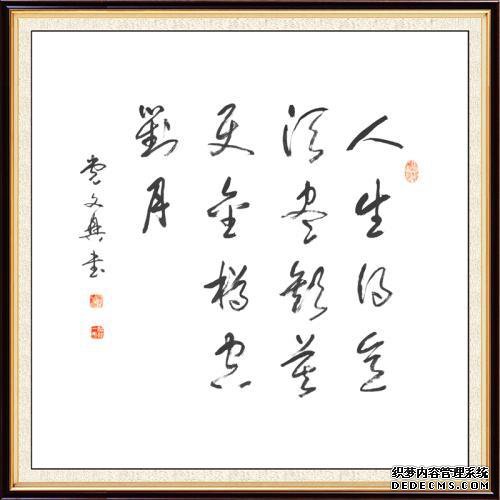 人生得意
須盡歡莫
使金樽空
對月
党文興書
织梦内容管理系统
DEDECMS.COM